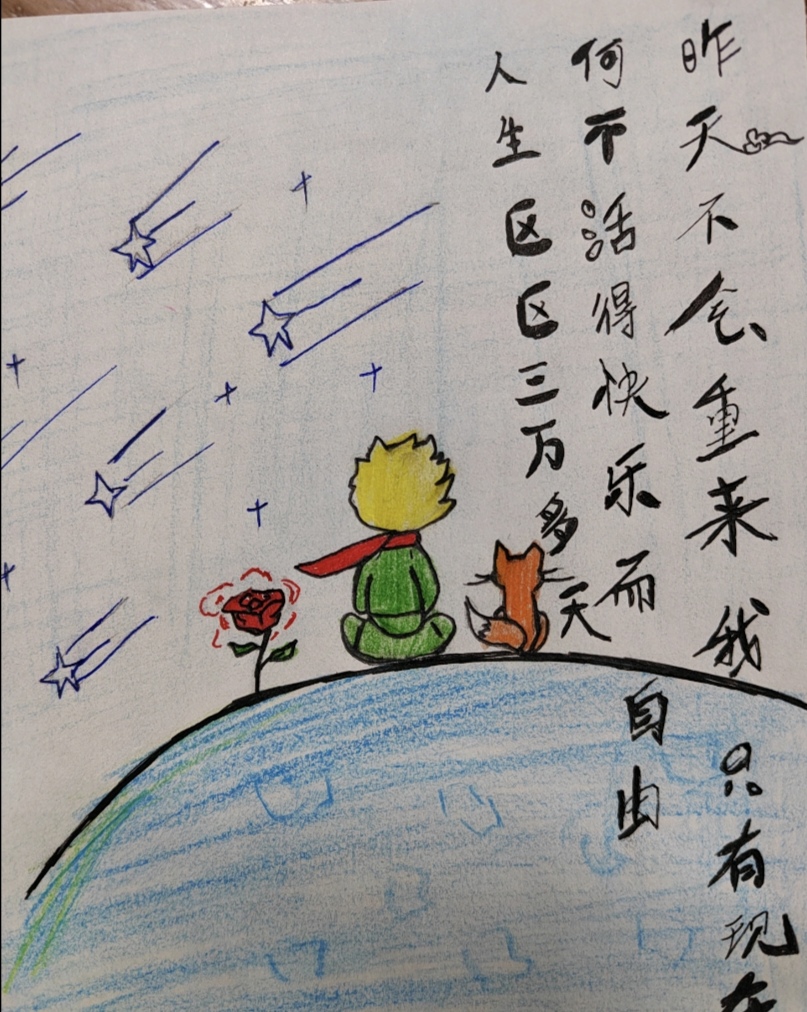 人生区区三万多天
何不活得快乐而自由
昨天不会重来我只有现在